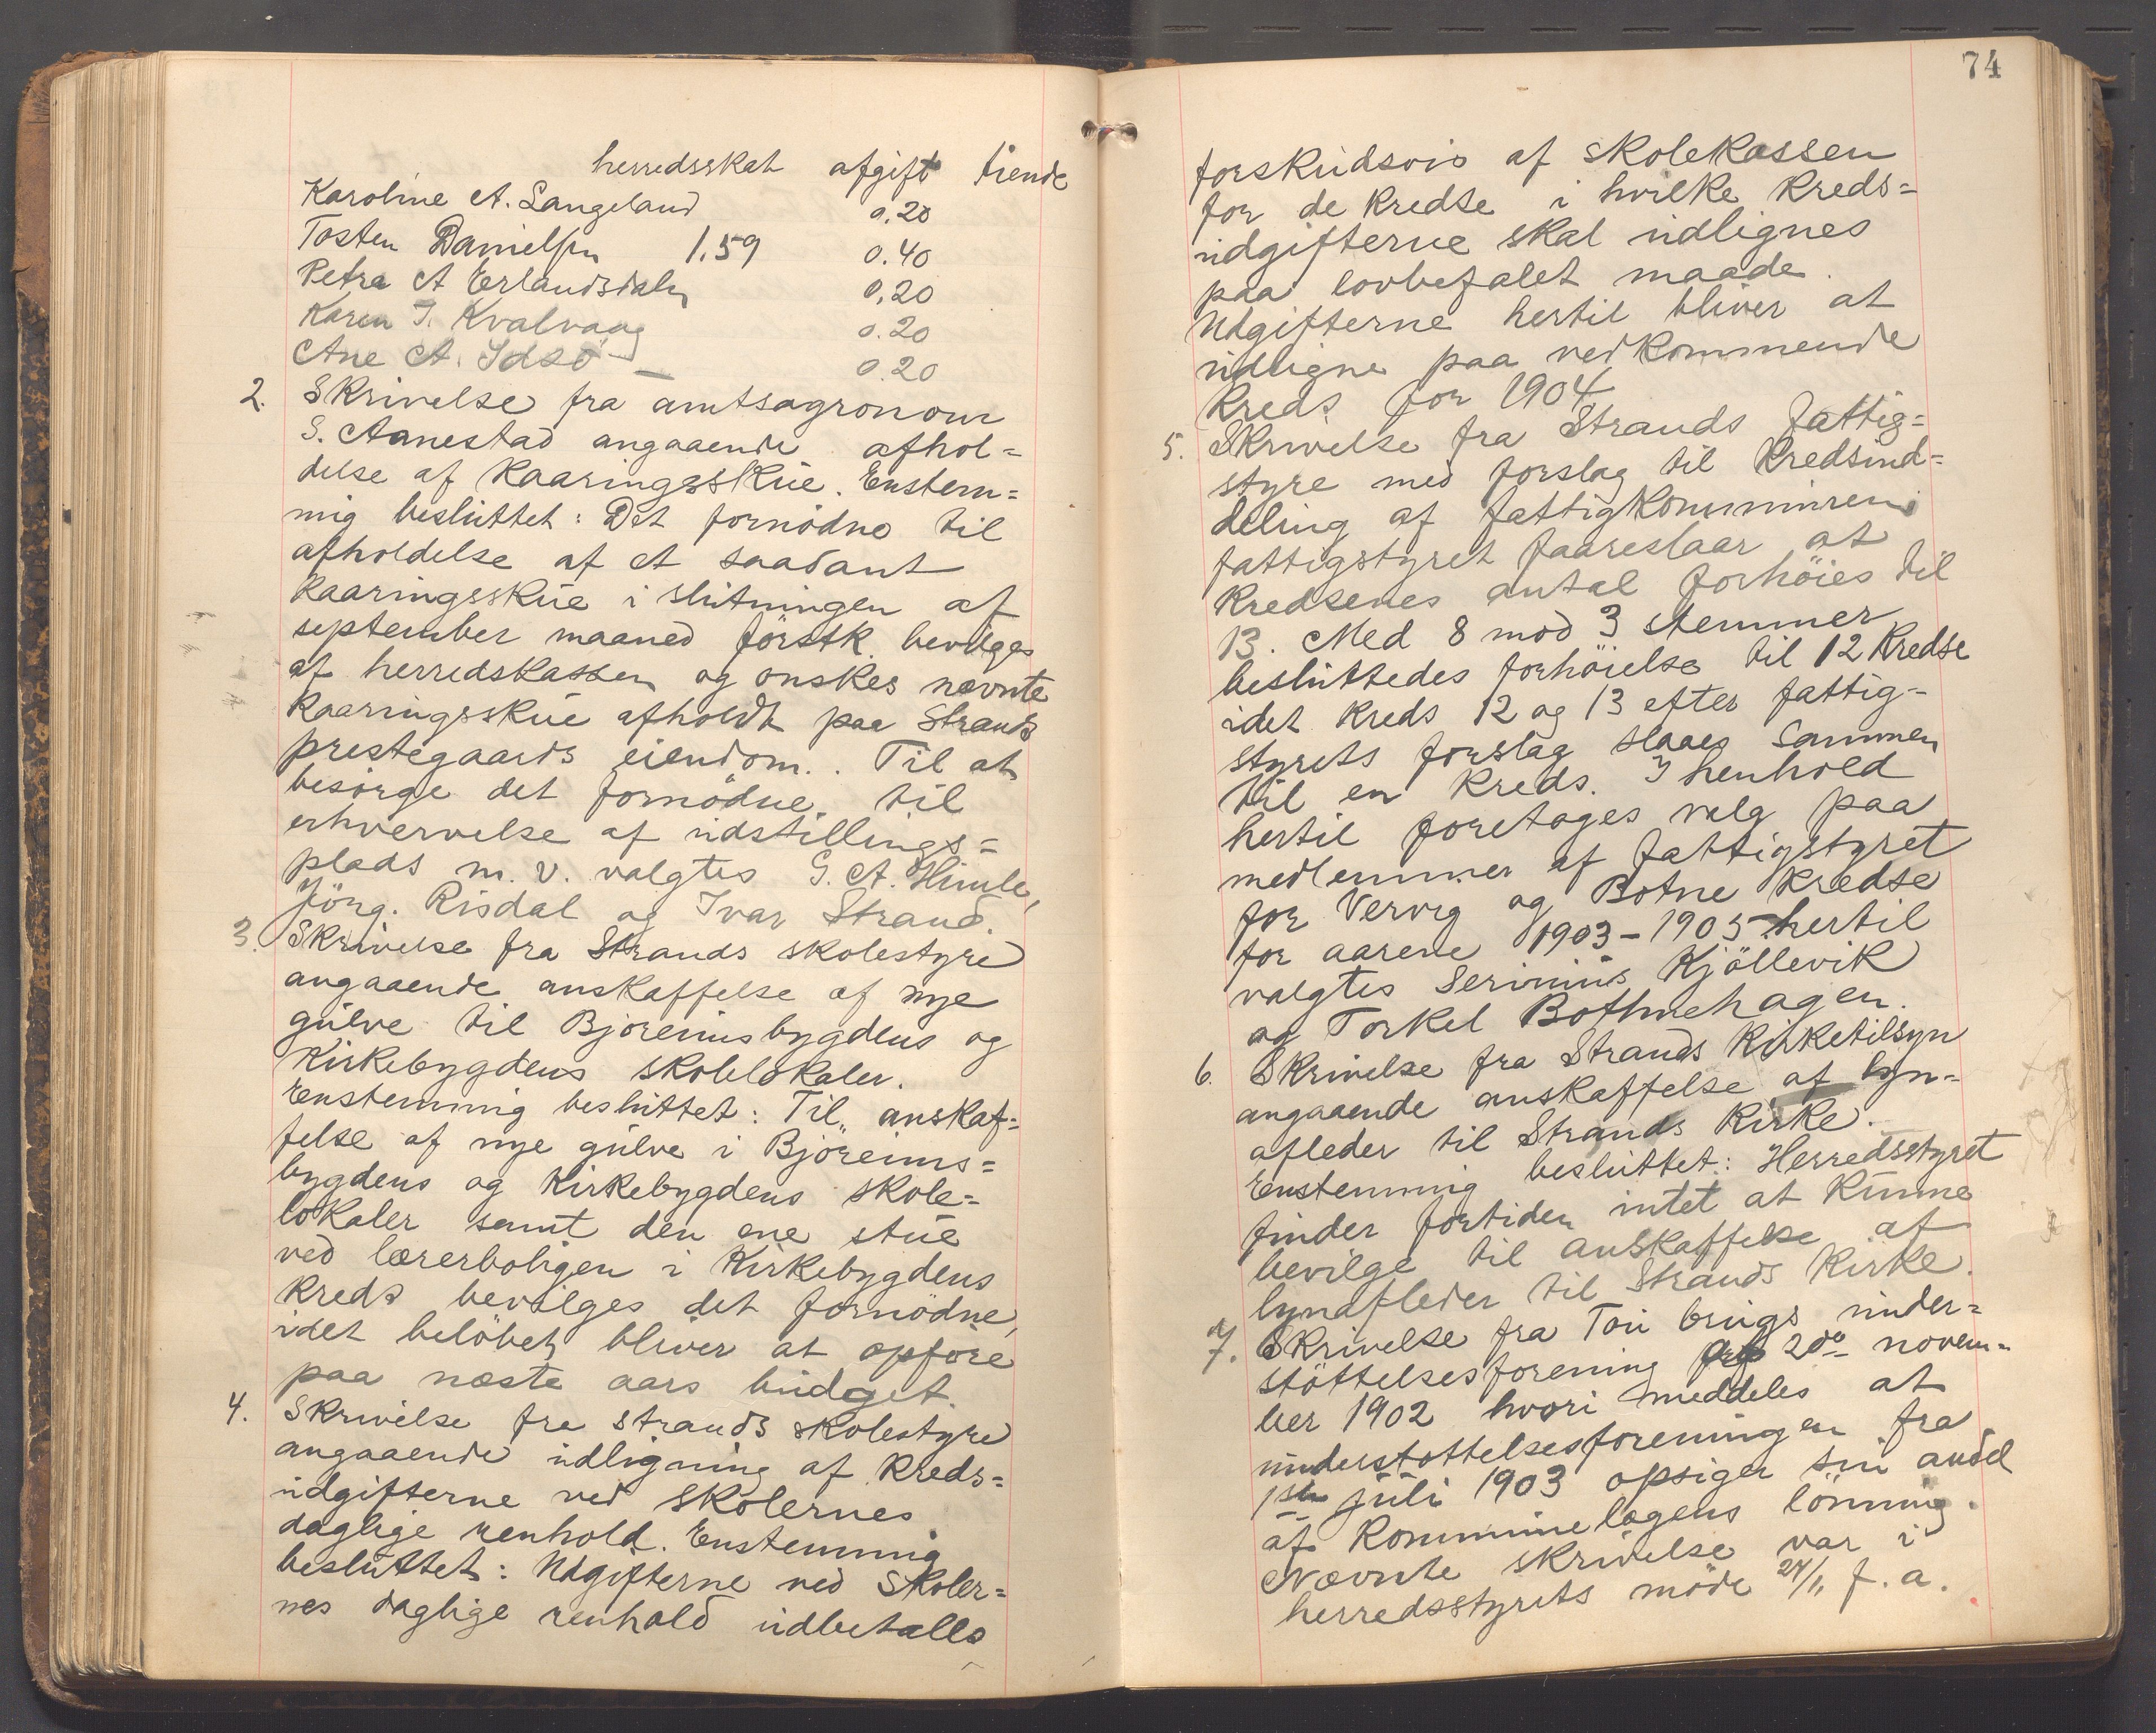 herredsskat afgift tiende
Karoline A. Langeland 0.20
Tosten Danielsen 1.59 0.40
Petra A Erlandsdaln 0.20
Karen T. Kvalvaag 0.20
Ane A. Idsö 0.20
2. Skrivelse fra amtsagronom
S. Aanestad angaaende afhol=
delse af Kaaringsskue. Enstem=
mig besluttet: Det fornödne til
afholdelse af et saadant
Kaaringsskue i slutningen af
september maaned förstk. bevilges
af herredskassen og onskes nævnte
Kaaringsskue afholdt paa Strands
prestegaards eiendom.. Til at
besörge det fornödne til
erhvervelse af udstillings=
plads m. v. valgtes G. A. Himle,
Jörg. Risdal og Ivar Strand.
3. Skrivelse fra Strands skolestyre
angaaende anskaffelse af nye
gulve til Bjoreimsbygdens og
Kirkebygdens skolelokaler.
Enstemmig besluttet: Til anskaf=
felse af nye gulve i Björeims=
bygdens og Kirkebygdens skole=
lokaler samt den ene stue
ved lærerboligen i Kirkebygdens
Kreds bevilges det fornödne,
idet belöbet bliver at opföre
paa næste aars budget.
4. Skrivelse fra strands skolestyre
angaaende udligning af Kreds=
udgifterne ved Skolernes
daglige renhold. Enstemmig
besluttet: Udgifterne ved Skoler=
nes daglige renhold udbetalls
74
forskudsvis af skolekassen
for de kredse i hvilke Kreds=
udgifterne skal udlignes
paa lovbefalet maade.
Udgifterne hertil bliver at
udligne paa vedkommende
Kreds for 1904
5. Skrivelse fra Strands fattig=
styre med forslag til Kredsind=
deling af fattigkommunen
fattigstyret faareslaar at
Kredsenes antal forhöies til
13. Med 8 mod 3 stemmer
besluttedes forhöielse til 12 Kredse
idet Kreds 12 og 13 efter fattig=
styrets forslag slaaes sammen
til en Kreds. I henhold
hertil foretages valg paa
medlemmer af fattigstyret
for Vervig og Botne Kredse
for aarene 1903-1905 hertil
valgtes Serinius Kjöllevik
og Torkel Bothnehagen.
6. Skrivelse fra Strands Kirketilsyn
angaaende anskaffelse af lyn=
afleder til Strands Kirke.
Enstemmig besluttet: Herredsstyret
finder fortiden intet at Kunne
bevilge til anskaffelse af
lynafleder til Strands Kirke.
7. Skrivelse fra Tou brugs under=
stöttelsesforening 20de novem=
ber 1902 hvori meddeles at
understottelsesforeningen fra
1ste juli 1903 opsiger sin andel
af Kommunelægens lönning.
Nævnte skrivelse var i
herredsstyrets möde 24/11 f. a.